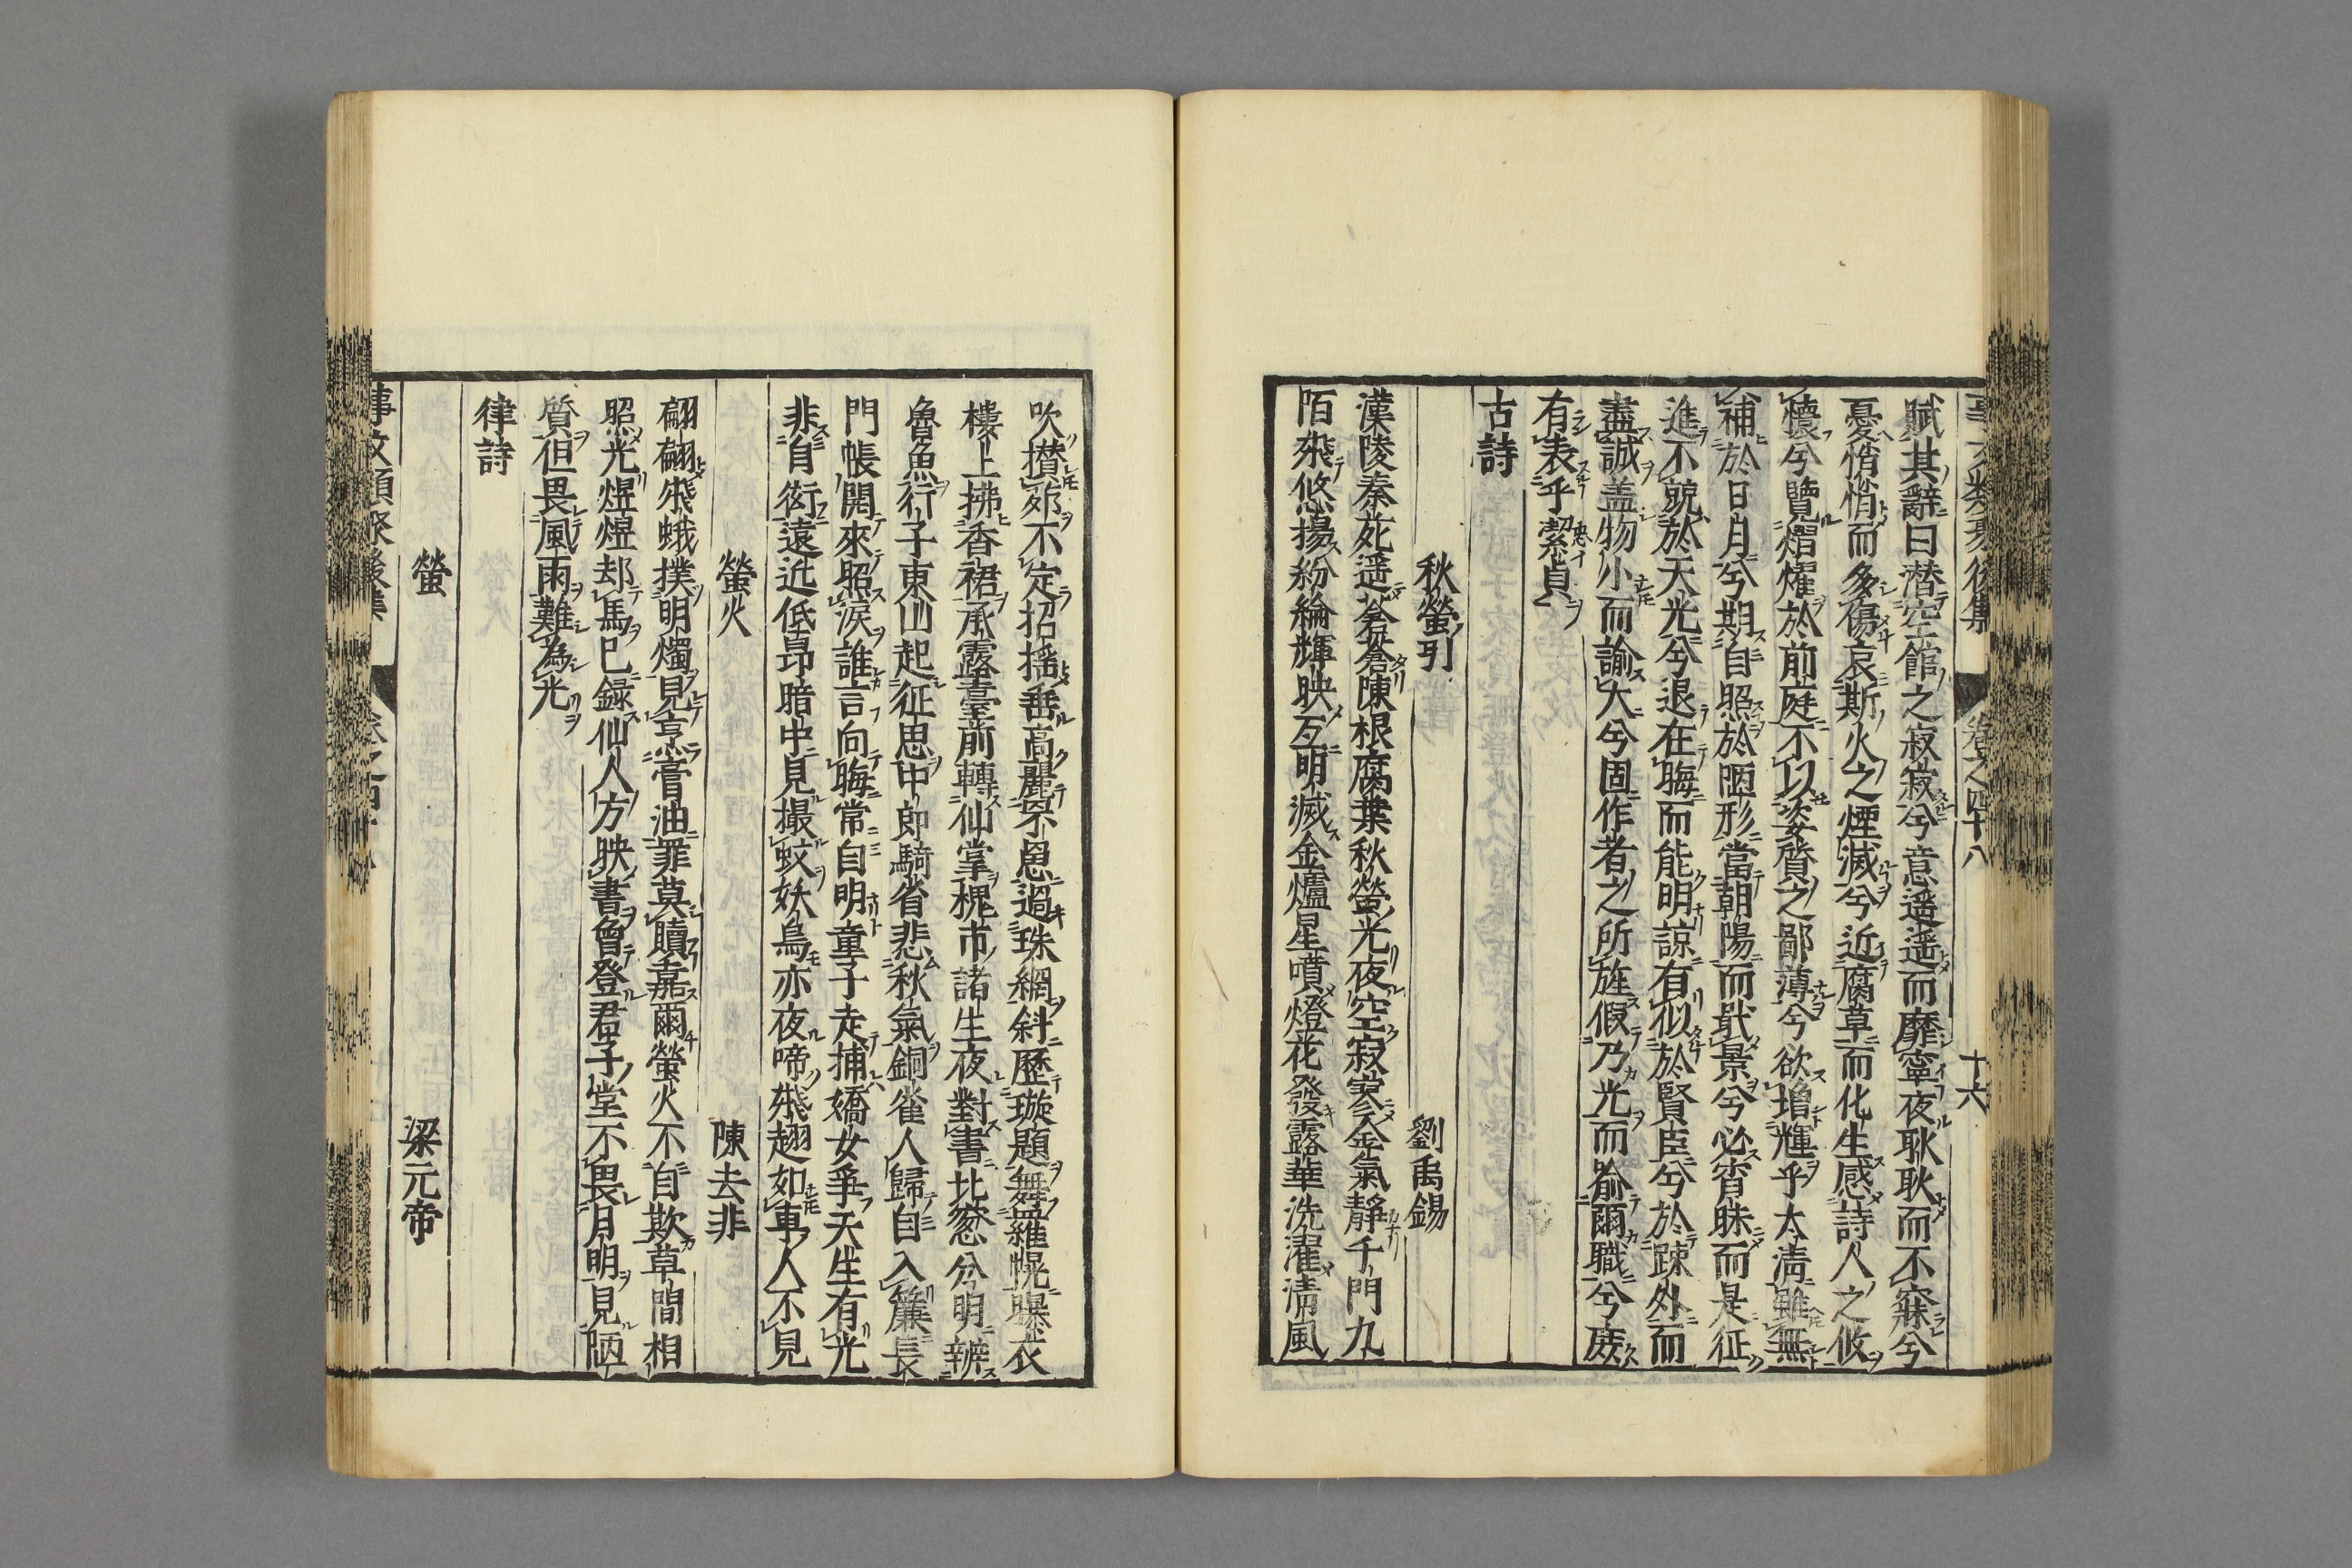 卷之四十八 十六
賦其辭曰潜空館之寂寂兮意遥遥而靡寧夜耿耿而不寐兮
憂悄悄而多傷哀斯火之煙滅兮近腐草而化生感詩人之攸
懷兮覽熠燿於前庭不以姿質之鄙薄兮欲增輝乎太清雖無
補於日月兮期自照於陋形當朝陽而戢景兮必宵昧而是征
進不競於天光兮退在晦而能明諒有似於賢臣兮於踈外而
盡誠盖物小而諭大兮固作者之所旌假乃光而喻爾職兮庻
有表乎潔貞
古詩
秋螢引 劉禹錫
漢陵秦苑遥蒼蒼陳根腐葉秋螢光夜空寂寥金氣靜千門九
陌飛悠揚紛綸輝映互明滅金爐星噴燈花發露華洗濯清風
吹攅昂不定招揺垂高麗罘罳過珠網斜歷璇題舞羅幌曝衣
樓上拂香裙承露臺前轉仙掌槐市諸生夜對書北䆫分明辨
魯魚行子東山起征思中郎騎省悲秋氣銅雀人歸自入簾長
門帳開來照淚誰言向晦常自明童子走捕嬌女爭天生有光
非自衒遠近低昂暗中見撮蚊妖鳥亦夜啼飛翅如車人不見
螢火 陳去非
翩翩飛蛾撲明燭見烹膏油罪莫贖嘉爾螢火不自欺草間相
照光煜煜却馬已録仙人方映書曾登君子堂不畏月明見陋
質但畏風雨難為光
律詩
螢 梁元帝
事文類聚後集